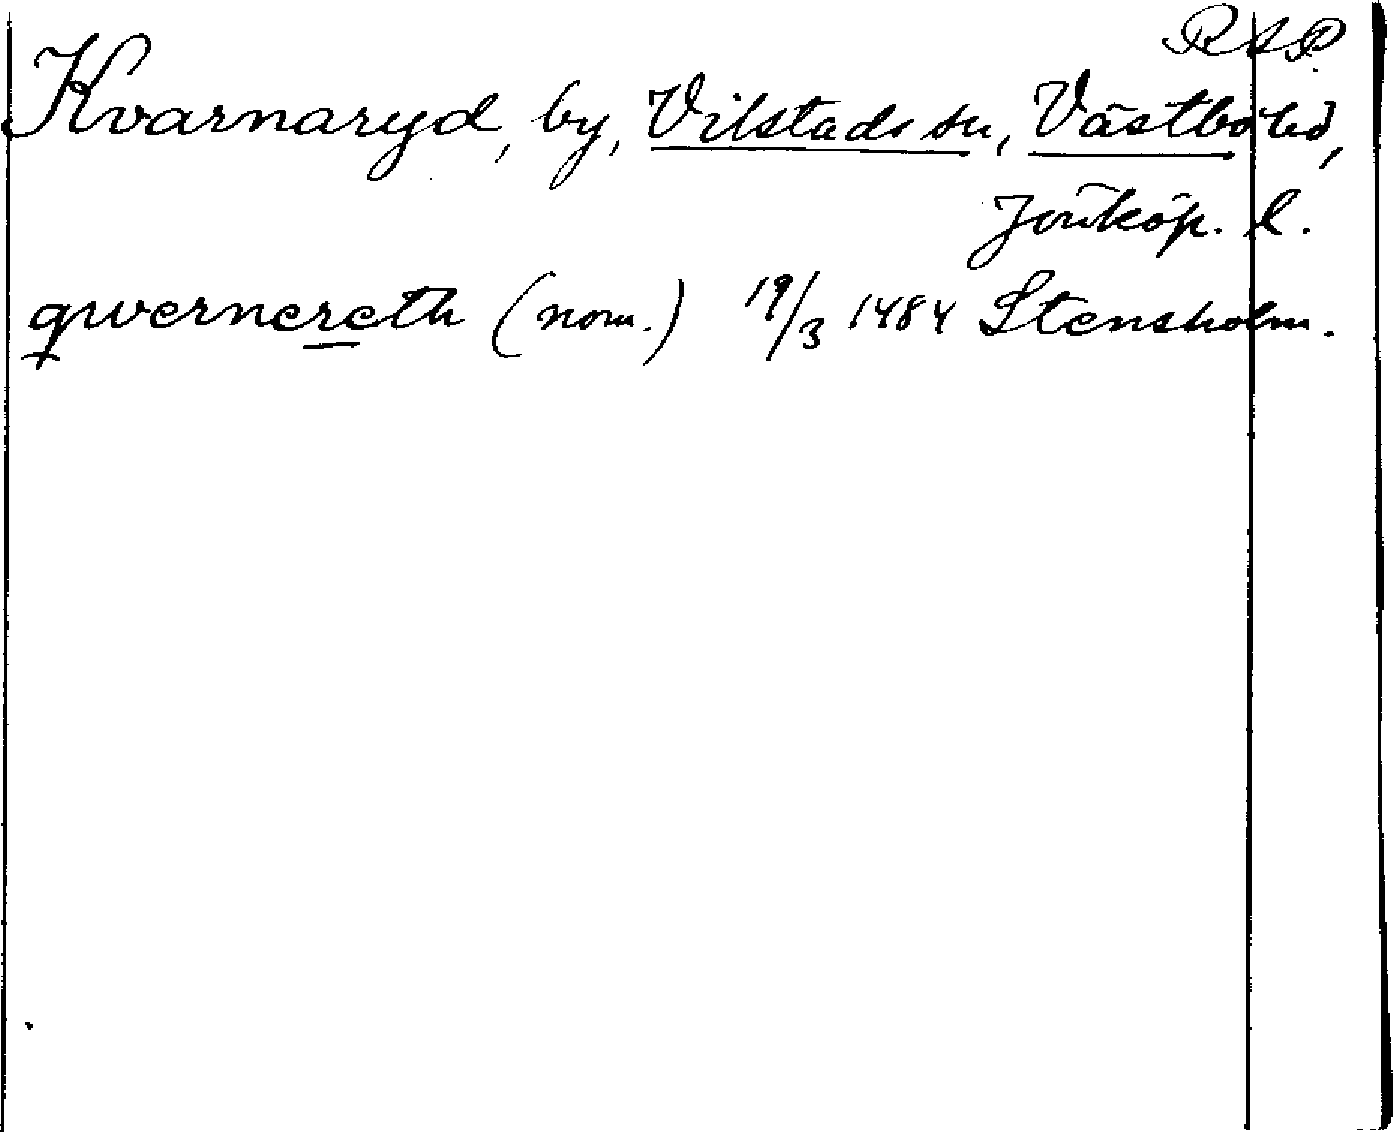 RAP.
Kvarnaryd, by, Vilstads sn, Västbo hd,
Jönköp. l.
qwernereth (nom.) 19/3 1484 Stensholm.